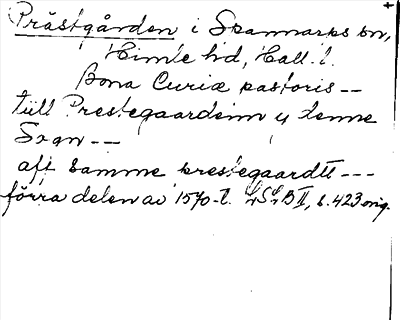 Prästgården i Skannarps sn,
Himle hd, Hall. l.
Bona Curiæ pastoris --
till Prestegaardenn y denne
Sogn --
aff samme prestegaardtt ---
förra delen av 1570-t. LSLB II, s. 423 orig.